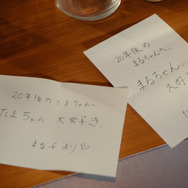 20年後のたまちゃんへ
たまちゃん、大好き。
まる子より
20年後の
まるちゃんへ
まるちゃん、
大好